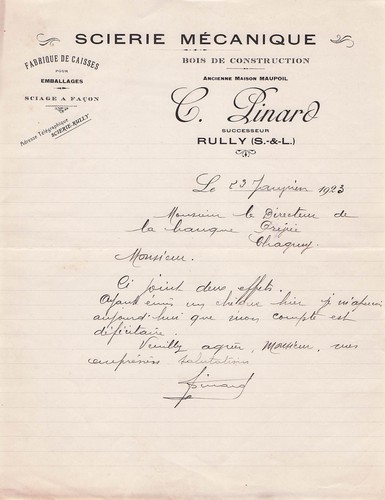 SCIERIE MÉCANIQUE
FABRIQUE DE CAISSES
POUR
EMBALLAGES
SCIAGE A FAÇON
Adresse Télégraphique
SCIERIE-RULLY
BOIS DE CONSTRUCTION
ANCIENNE MAISON MAUPOIL
C. Pinard
SUCCESSEUR
RULLY (S.-&-L.)
Le 23 Janvier 1923
Monsieur le Directeur de
la banque
Chagny.
Monsieur.
Ci joint deux effets.
Ayant émis un chèque hier je m'aperçois
aujourd'hui que mon compte est
déficitaire.
Veuillez agréer, Monsieur, mes
empressées salutations
Pinard